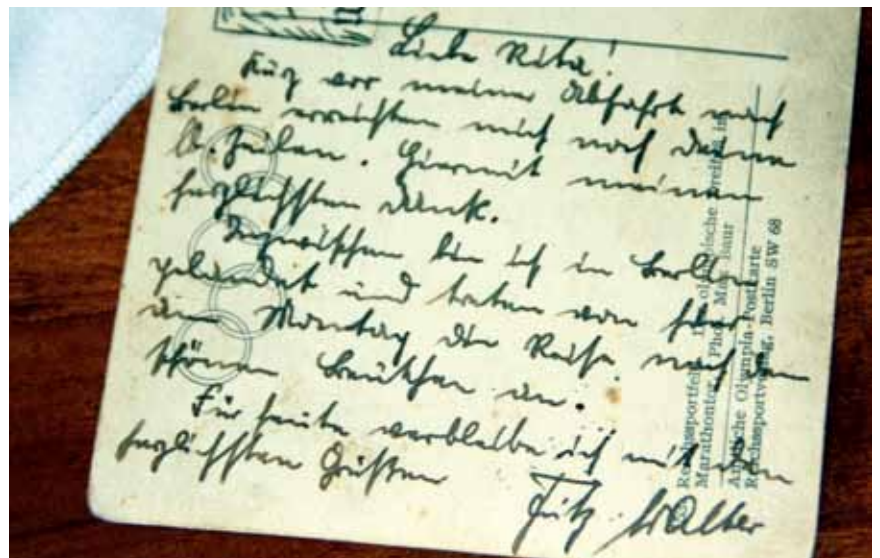 Liebe Rita!
Kurz vor meiner Abfahrt nach
Berlin erreichten mich noch deine
Zeilen. Hiermit meinen
herzlichsten Dank.
Inzwischen bin ich in Berlin
gelandet und treten von hier
am Montag die Reise nach dem
schönen Beuthen an.
Für heute verbleibe ich mit den
herzlichsten Grüßen
Fritz Walter
Reichssportfeld. olympische
Marathontor. Phot. Max Baur
Amtliche Olympia-Postkarte
Reichssportverlag, Berlin SW 68